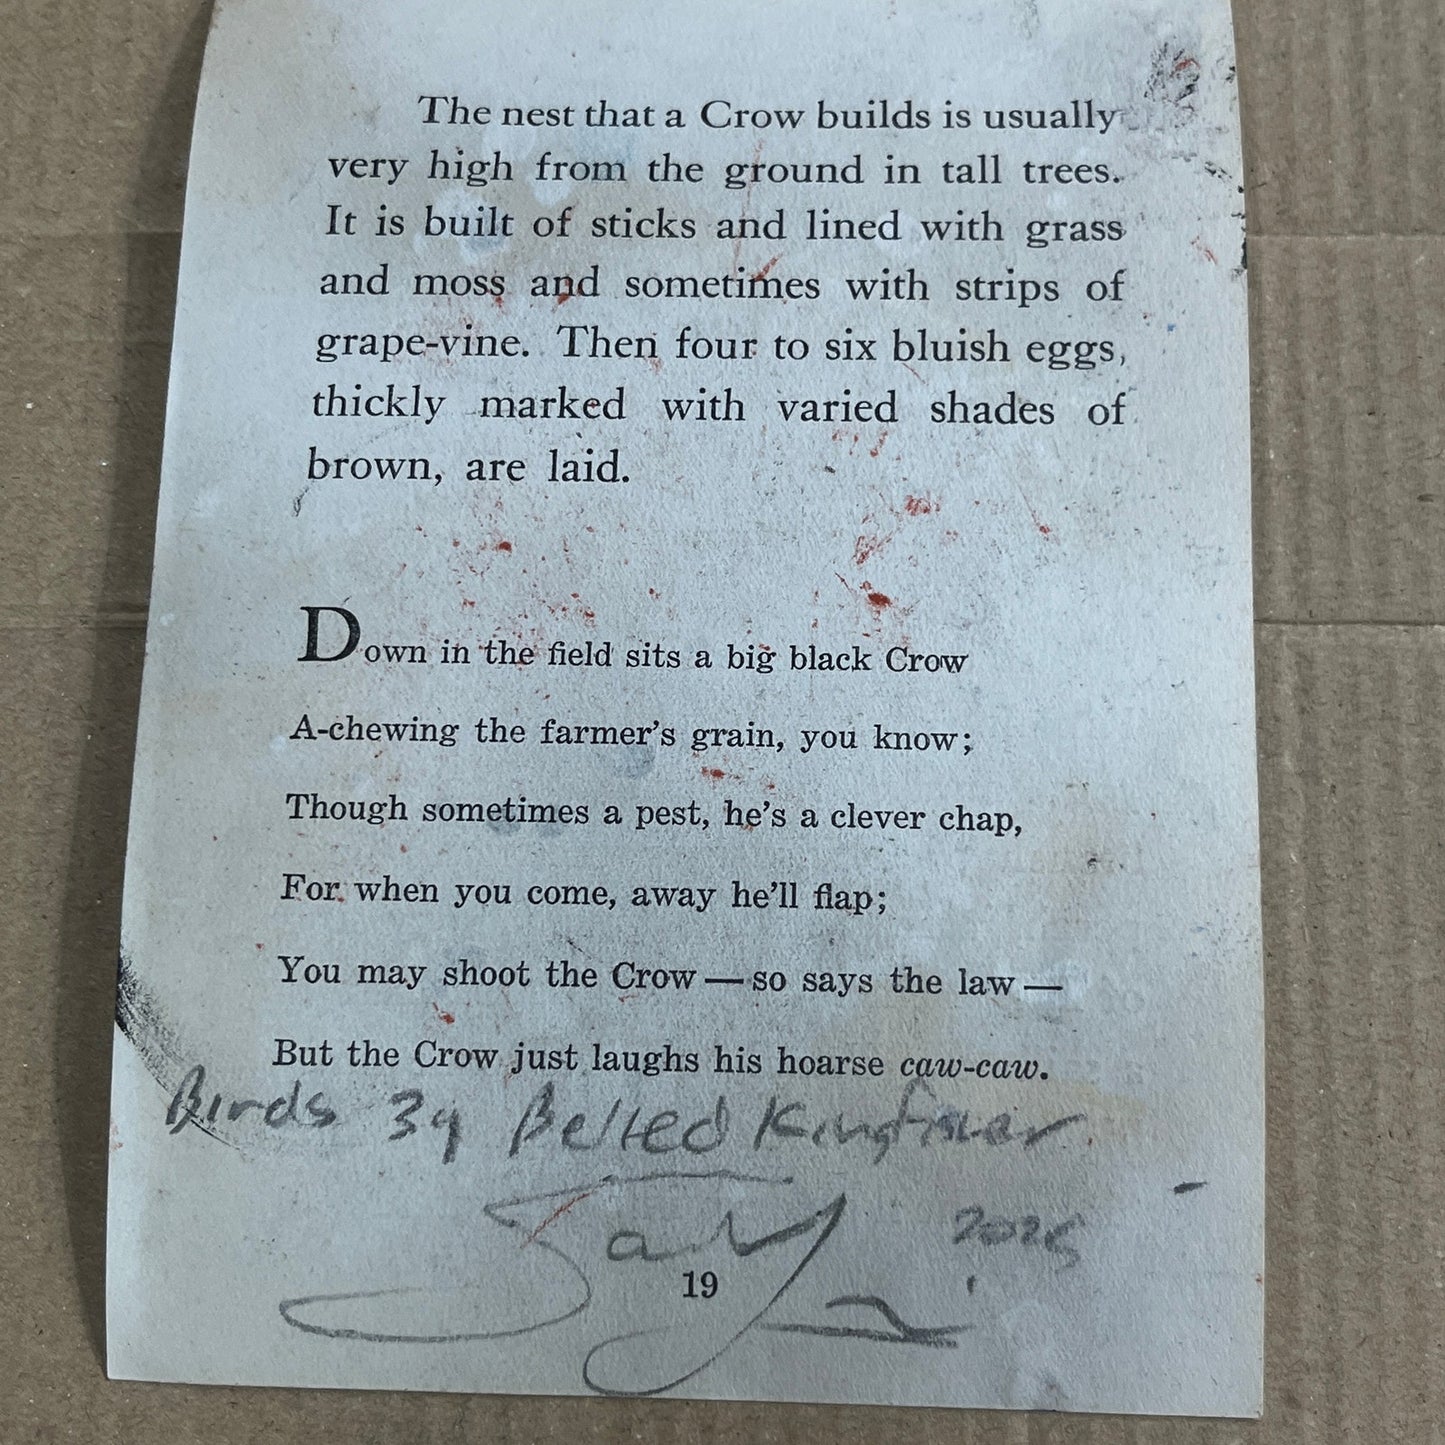 The nest that a Crow builds is usually
very high from the ground in tall trees.
It is built of sticks and lined with grass
and moss and sometimes with strips of
grape-vine. Then four to six bluish eggs,
thickly marked with varied shades of
brown, are laid.
Down in the field sits a big black Crow
A-chewing the farmer's grain, you know;
Though sometimes a pest, he's a clever chap,
For when you come, away he'll flap;
You may shoot the Crow — so says the law —
But the Crow just laughs his hoarse caw-caw.
Birds 34 Belted Kingfisher
2025
19